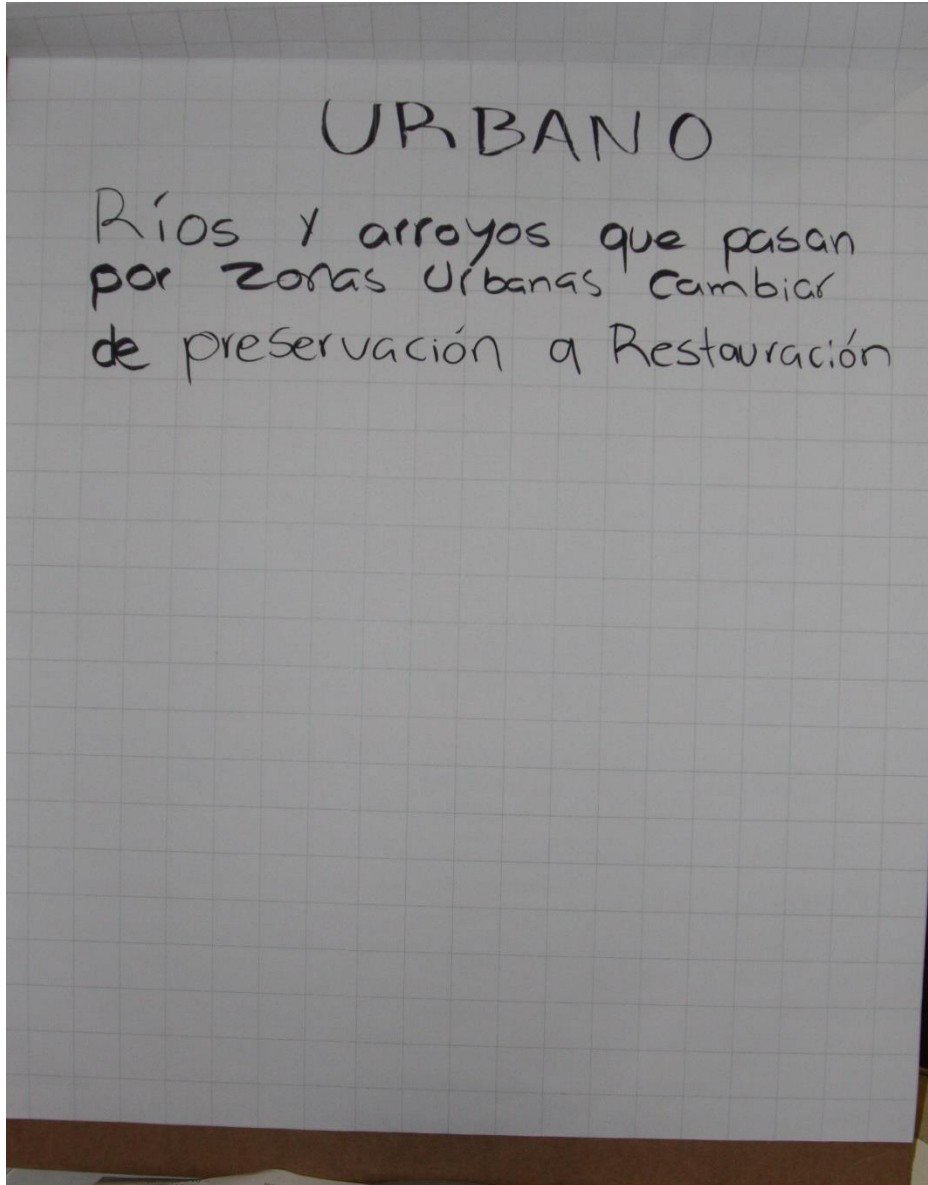 URBANO
Ríos y arroyos que pasan
por zonas Urbanas Cambiar
de preservación a Restauración